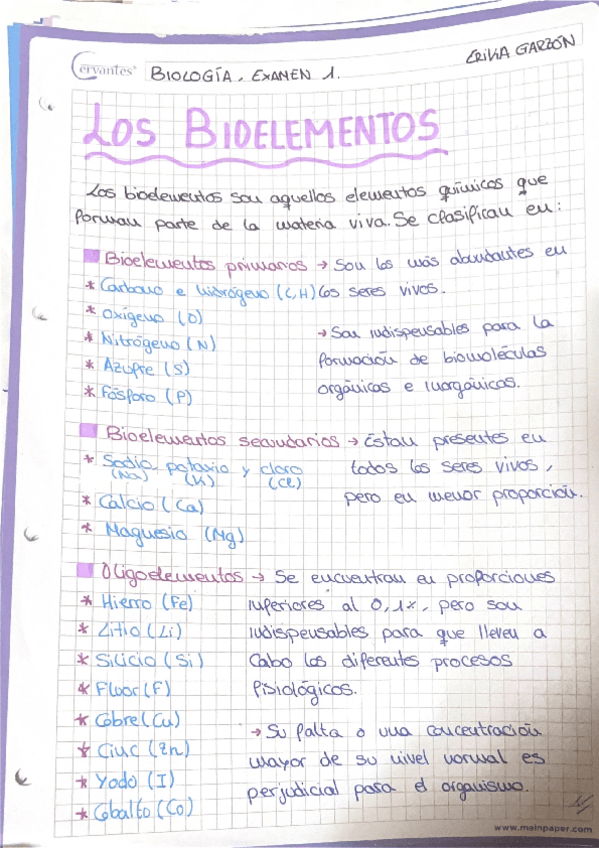 Cervantes
BIOLOGÍA. EXAMEN 1.
ERIKA GARZÓN
LOS BIOELEMENTOS
Los bioelementos son aquellos elementos químicos que
forman parte de la materia viva. Se clasifican en:
Bioelementos primarios → Son los más abundantes en
* Carbono e hidrógeno (C, H) los seres vivos.
* Oxígeno (O)
* Nitrógeno (N)
* Azufre (S)
* Fósforo (P)
→ Son indispensables para la
formación de biomoléculas
orgánicas e inorgánicas.
Bioelementos secundarios → Están presentes en
todos los seres vivos,
pero en menor proporción.
* Sodio, potasio y cloro
(Na) (K) (Cl)
* Calcio (Ca)
* Magnesio (Mg)
Oligoelementos → Se encuentran en proporciones
inferiores al 0,1%, pero son
indispensables para que lleven a
cabo los diferentes procesos
fisiológicos.
→ Su falta o una concentración
mayor de su nivel normal es
perjudicial para el organismo.
* Hierro (Fe)
* Litio (Li)
* Silicio (Si)
* Fluor (F)
* Cobre (Cu)
* Cinc (Zn)
* Yodo (I)
* Cobalto (Co)
www.mainpaper.com